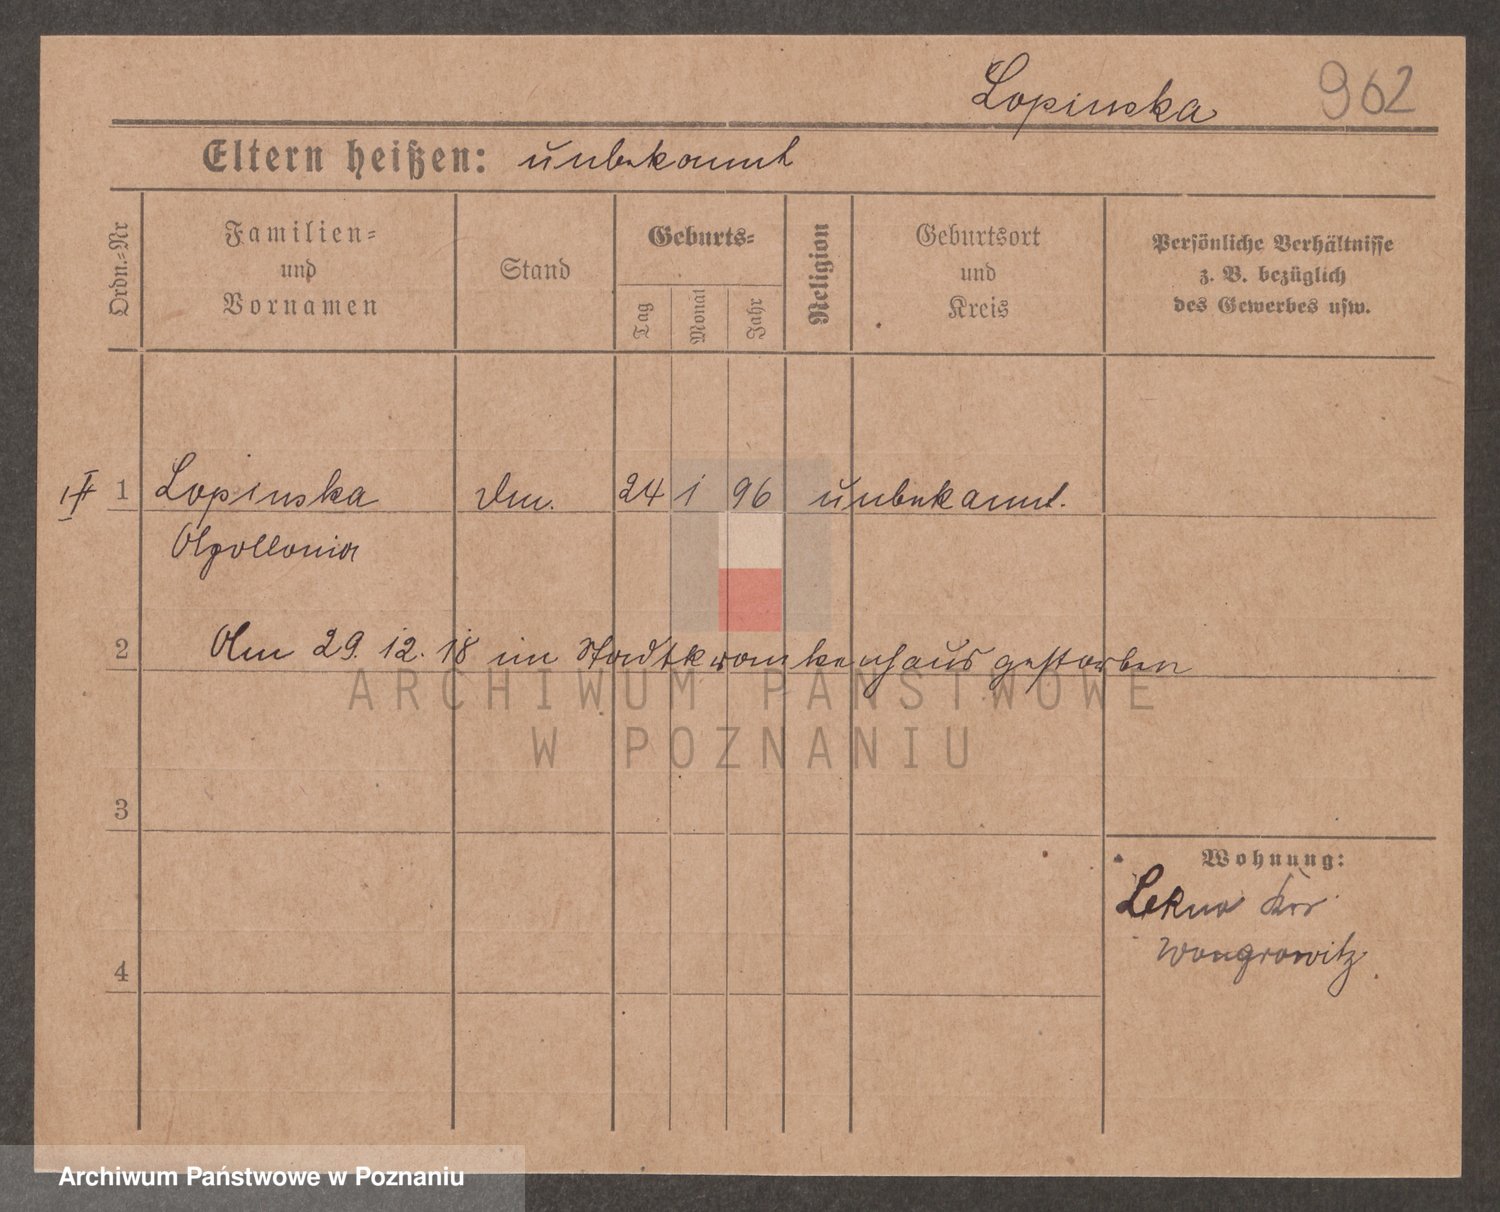 Lopinska 962
Eltern heißen: unbekannt
Ordn.=Nr
Familien=
und
Vornamen
Stand
Geburts=
Tag
Monat
Jahr
Religion
Geburtsort
und
Kreis
Persönliche Verhältnisse
z. B. bezüglich
des Gewerbes usw.
1 Lopinska 24 1 96 unbekannt.
Apollonia
2 Am 29. 12. 18 im Stadtkrankenhaus gestorben
ARCHIWUM PAŃSTWOWE
W POZNANIU
3
Wohnung:
Lekno Krs
Wongrowitz
4
Archiwum Państwowe w Poznaniu